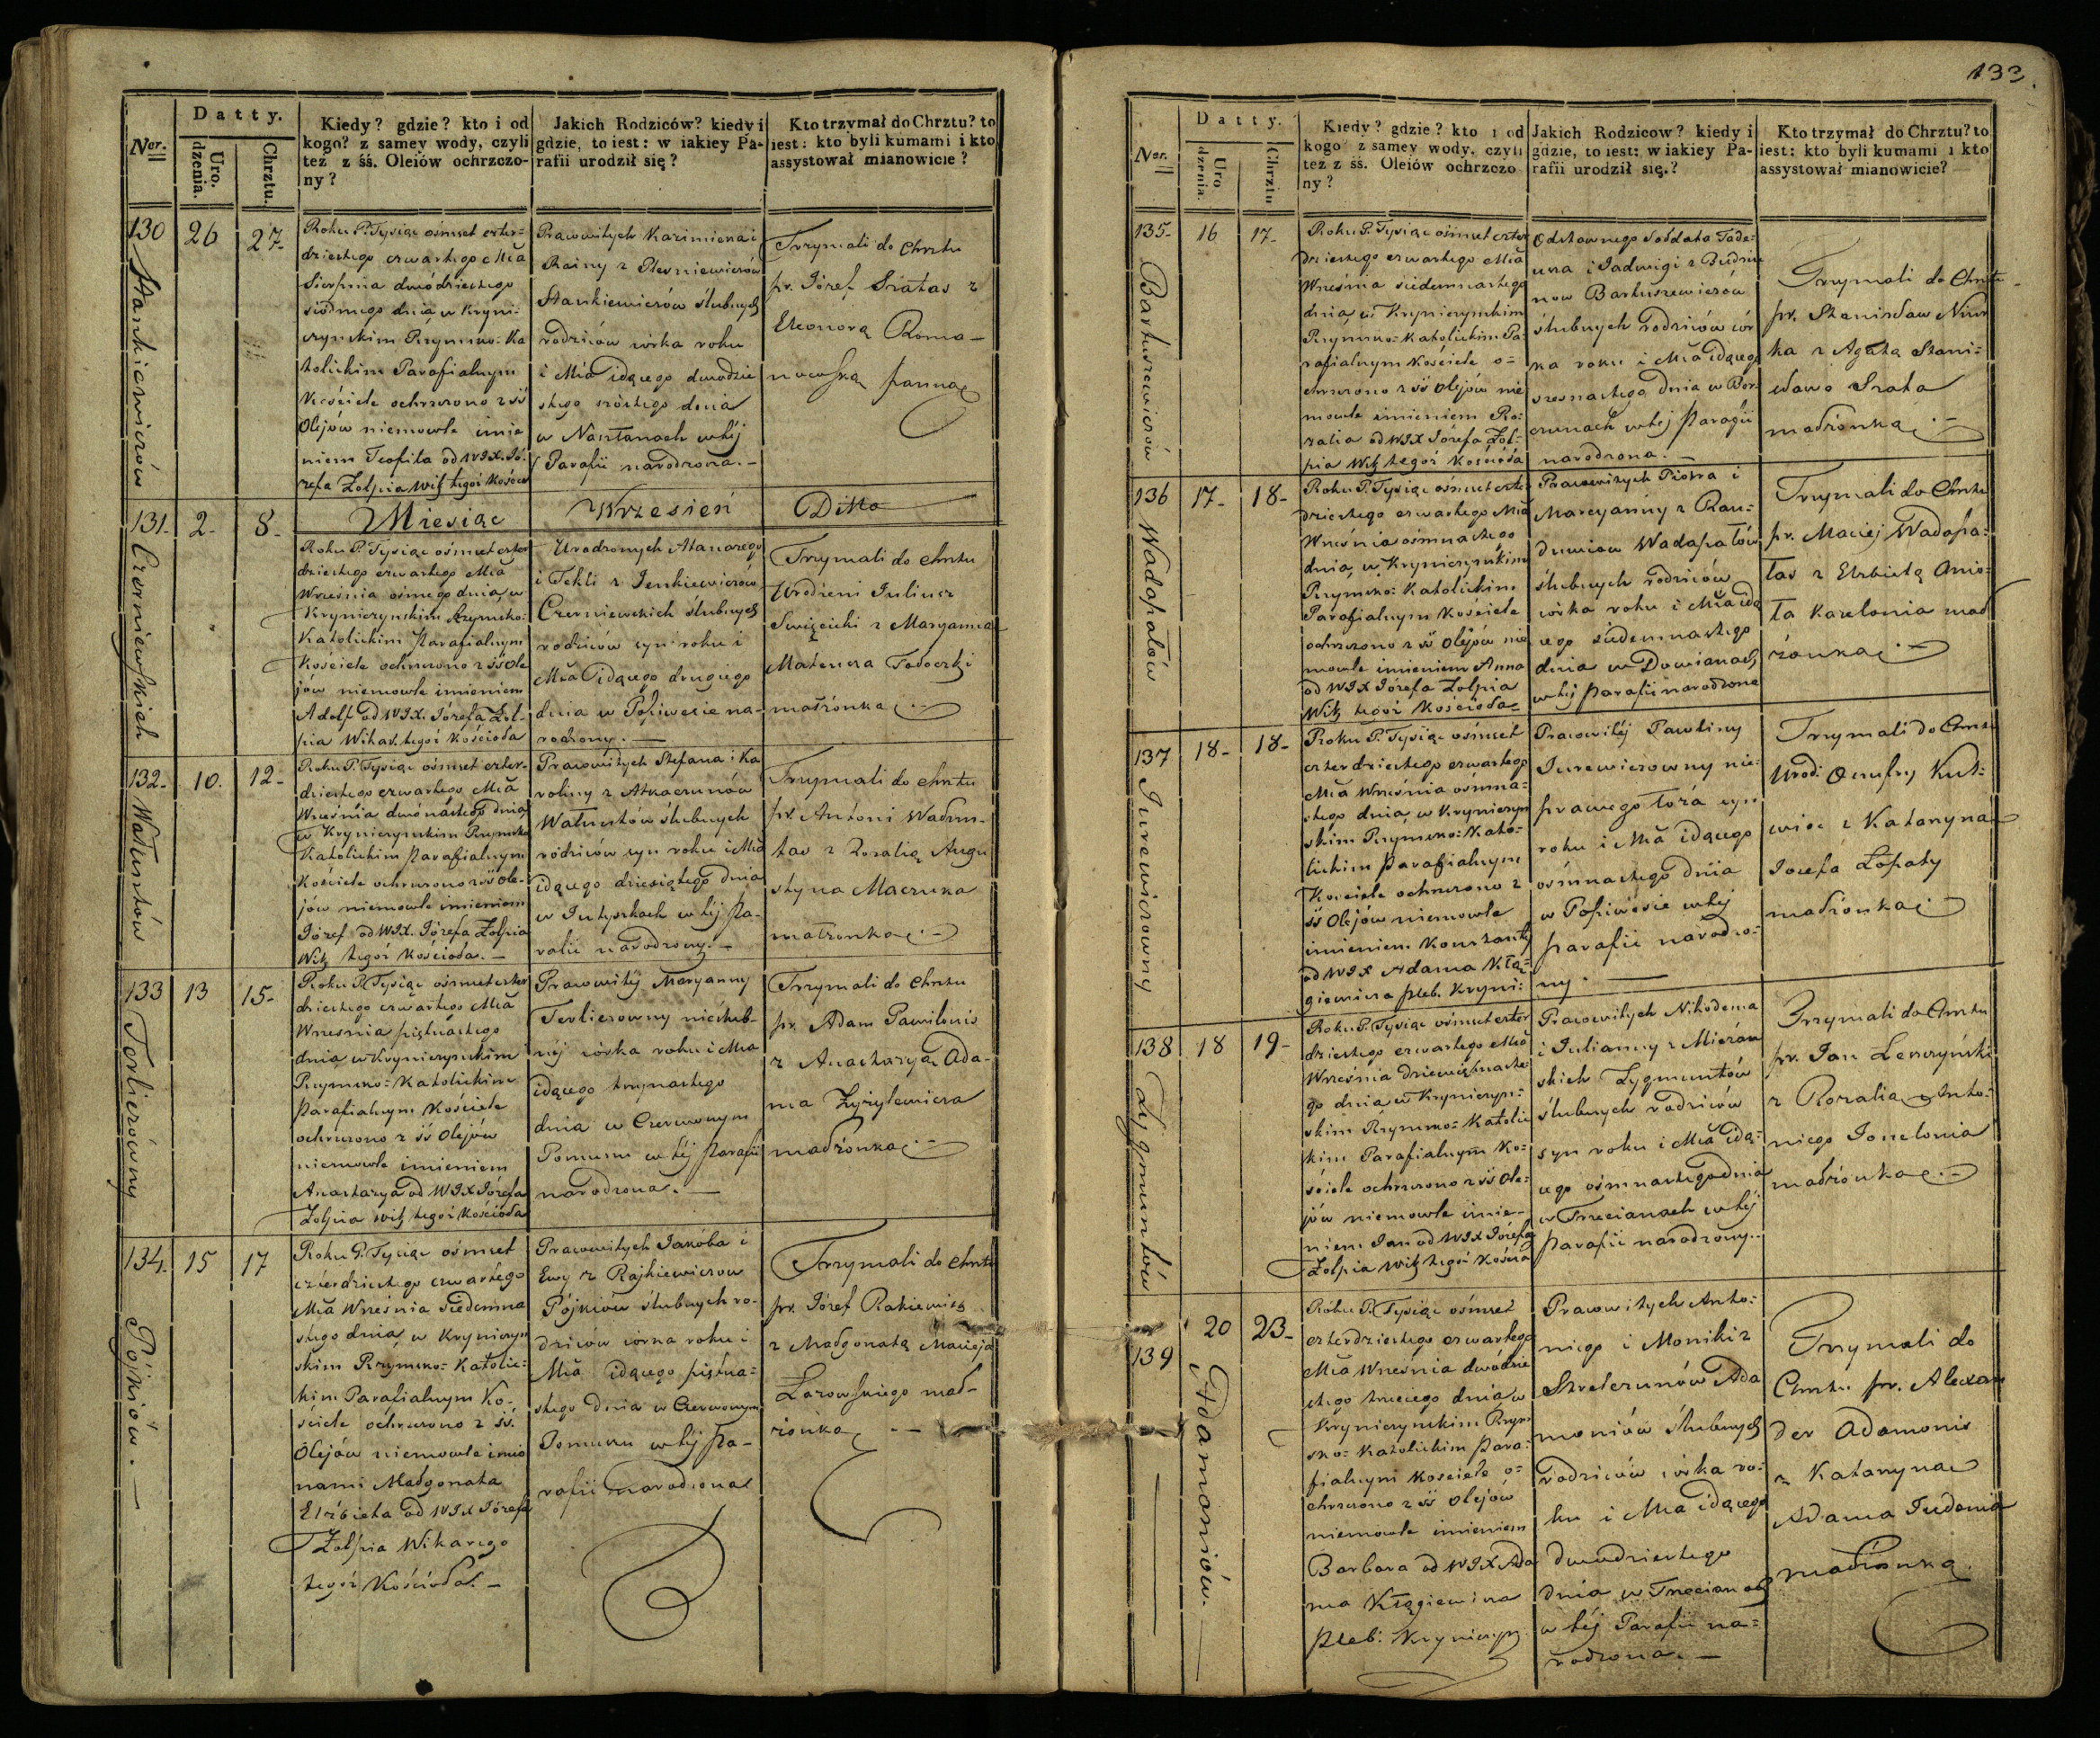 133.
Nor.
Datty.
Uro.
dzenia.
Chrztu.
Kiedy? gdzie? kto i od
kogo? z samey wody, czyli
też z śś. Oleiów ochrzczo-
ny?
Jakich Rodziców? kiedy i
gdzie, to iest: w iakiey Pa-
rafii urodził się?
Kto trzymał do Chrztu? to
iest: kto byli kumami i kto
assystował mianowicie?
130
26
27-
Stankiewiczów
Roku P. Tysiąc ośmset czter-
dziestego czwartego Mca
Sierpnia dwódziestego
siódmego dnia, w Kryni-
czyńskim Rzymsko=Ka
tolickim Parafialnym
Kościele ochrzczono z śś
Olejów niemowle imie
niem Teofila od WJX. Jó-
zefa Żołpia Wik tegoż Kościoła
Pracowitych Kazimierza i
Stankiewiczów ślubnych
rodziców córka roku
i Mca idącego dwódzie
stego szóstego dnia
w Nartanach w téj
Parafii narodzona.-
Trzymali do Chrztu
pr. Józef Szatas z
Eleonorą Roma-
nowską panną
131.
2-
8-
Czerniewskich
Miesiąc
Wrzesień
Ditto
Roku P. Tysiąc ośmset czter
dziestego czwartego Mca
Września ósmego dnia, w
Kryniczyńskim Rzymsko-
Katolickim Parafialnym
Kościele ochrzczono z śś Ole
jów niemowle imieniem
Adolf od WJX. Józefa Żoł-
pia Wikar. tegoż Kościoła
Urodzonych Atanazego
i Tekli z Jenkiewiczów
Czerniewskich ślubnych
rodziców syn roku i
Mca idącego drugiego
dnia w Popiwesie na-
rodzony.-
Trzymali do Chrztu
Urodzeni Juliusz
Święcicki z Maryanną
Mateusza Todoczki
małżonką.-
132-
10.
12-
Watuntów
Roku P. Tysiąc ośmset czter-
dziestego czwartego Mca
Września dwónastego dnia
w Kryniczyńskim Rzymsko
Katolickim Parafialnym
Kościele ochrzczono z śś Ole-
jów niemowle imieniem
Józef od WJX. Józefa Żołpia
Wik tegoż Kościoła.-
Pracowitych Stefana i Ka
roliny z
Watuntów ślubnych
rodziców syn roku i Mca
idącego dziesiątego dnia
w Juteszkach w téj Pa-
rafii narodzony.-
Trzymali do Chrztu
pr. Antoni Wadun-
tas z Rozalią Augu
styna Maczuka
małżonką.-
133
13
15-
Terliczówny
Roku P. Tysiąc ośmset czter
dziestego czwartego Mca
Września piętnastego
dnia w Kryniczyńskim
Rzymsko=Katolickim
Parafialnym Kościele
ochrzczono z śś Olejów
niemowle imieniem
Anastazya od WJX Józefa
Żołpia Wik tegoż Kościoła
Pracowitéj Maryanny
Terliczowny nieślub-
néj córka roku i Mca
idącego trzynastego
dnia w Czerwonym
Pomusu w téj Parafii
narodzona.-
Trzymali do Chrztu
pr. Adam Pawilonis
z Anastazyą Ada-
ma Żyżylewicza
małżonką.-
134.
15
17
Pójniów.-
Roku P. Tysiąc ośmset
czterdziestego czwartego
Mca Września siedemna
stego dnia, w Kryniczyń
skim Rzymsko=Katolic-
kim Parafialnym Ko-
ściele ochrzczono z śś.
Olejów niemowle imio
nami Małgorzata
Elżbieta od WJX Józefa
Żołpia Wikarego
tegoż Kościoła.-
Pracowitych Jakóba i
Ewy z Rajkiewiczow
Pójniów ślubnych ro-
dziców córka roku i
Mca idącego piętna-
stego dnia w Czerwonym
Pomusu w téj Pa-
rafii narodzona
Trzymali do Chrztu
pr. Józef Rakiewicz
z Małgorzatą Macieja
Łazowskiego mał-
żonką.-
Nor.
Datty.
Uro
dzenia.
Chrztu
Kiedy? gdzie? kto i od
kogo z samey wody, czyli
też z śś. Oleiów ochrzczo
ny?
Jakich Rodzicow? kiedy i
gdzie, to iest: w iakiey Pa-
rafii urodził się.?
Kto trzymał do Chrztu? to
iest: kto byli kumami i kto
assystował mianowicie?
135-
16
17-
Bartuszewiczów
Roku P. Tysiąc ośmset czter
dziestego czwartego Mca
Września siedemnastego
dnia, w Kryniczyńskim
Rzymsko=Katolickim Pa-
rafialnym Kościele o=
chrzczono z śś Olejów nie
mowle imieniem Ro-
zalia od WJX Józefa Żoł-
pia Wik tegoż Kościoła
Odstawnego Sołdata Tade-
usza i Jadwigi z
now Bartuszewiczów
ślubnych rodziców cór
ka roku i Mca idącego
szesnastego dnia w
w téj Parafii
narodzona.-
Trzymali do Chrztu
pr. Stanisław
ka z Agatą Stani-
sława Szata
małżonką.-
136
17-
18-
Wadapalów
Roku P. Tysiąc ośmset czte
dziestego czwartego Mca
Września ośmnastego
dnia, w Kryniczyńskim
Rzymsko=Katolickim
Parafialnym Kościele
ochrzczono z śś Olejów nie
mowle imieniem Anna
od WJX Józefa Żołpia
Wik tegoż Kościoła
Pracowitych Piotra i
Maryanny z Ran-
Wadapałów
ślubnych rodziców
córka roku i Mca idą
cego siedemnastego
dnia w Dowianach
w téj Parafii narodzona
Trzymali do Chrztu
pr. Maciej Wadapa-
łas z Elzbietą Anio-
ła Kazelonia mał
żonką.-
137
18-
18-
Jurewiczowny
Roku P. Tysiąc ośmset
czterdziestego czwartego
Mca Września ośmna-
stego dnia, w Kryniczyń
skim Rzymsko=Kato-
lickim Parafialnym
Kościele ochrzczono z
śś Olejów niemowle
imieniem Konstanty
od WJX Adama Kłą-
giewicza pleb. Kryni-
Pracowitéj Pawliny
Jurewiczowny nie-
prawego łoża syn
roku i Mca idącego
ośmnastego dnia
w Popiwesie w téj
Parafii narodzo-
ny.-
Trzymali do Chrztu
Urodz. Onufry Kut-
wicz z Katarzyną
Jozefa Łopaty
małżonką.
138
18
19-
Zygmuntów
Roku P. Tysiąc ośmset czter
dziestego czwartego Mca
Września dziewiętnaste-
go dnia w Kryniczyń-
skim Rzymsko=Katolic
kim Parafialnym Ko-
ściele ochrzczono z śś Ole-
jów niemowle imie-
niem Jan od WJX Józefa
Żołpia Wik tegoż Kościoła
Pracowitych Nikodema
i Julianny z
skich Zygmuntów
ślubnych rodziców
syn roku i Mca idą-
cego ośmnastego dnia
w Trzecianach w téj
Parafii narodzony.-
Trzymali do Chrztu
pr. Jan Leszczyński
z Rozalią Anto-
niego Jonelonia
małżonką.-
139
20
23-
Adamoniów.-
Roku P. Tysiąc ośmset
czterdziestego czwartego
Mca Września dwódzie
stego trzeciego dnia, w
Kryniczyńskim Rzym
sko=Katolickim Para-
fialnym Kościele o-
chrzczono z śś Olejów
niemowle imieniem
Barbara od WJX Ada
ma Kłągiewicza
pleb: Kryniczyń
Pracowitych Anto-
niego i Moniki z
Strelczunów Ada
moniów ślubnych
rodziców córka ro-
ku i Mca idącego
dwudziestego
dnia w Trzecianach
w téj Parafii na-
rodzona.-
Trzymali do
Chrztu pr. Alexan
der Adamonis
z Katarzyną
Adama Judenia
małżonką.